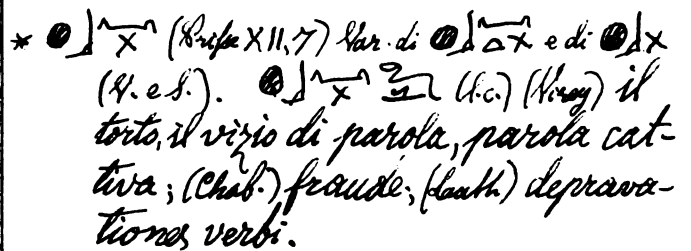 * (Prisse XII, 7) Var. di e di
(V. e S.). (l.c.) (Virey) il
torto, il vizio di parola, parola cat-
tiva; (Chab.) fraude; (Lauth.) deprava-
tiones verbi.